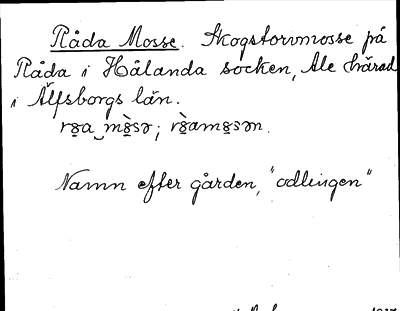 Råda Mosse. Skogstorvmosse på
Råda i Hålanda socken, Ale härad
i Älfsborgs län.
Namn efter gården, "odlingen"